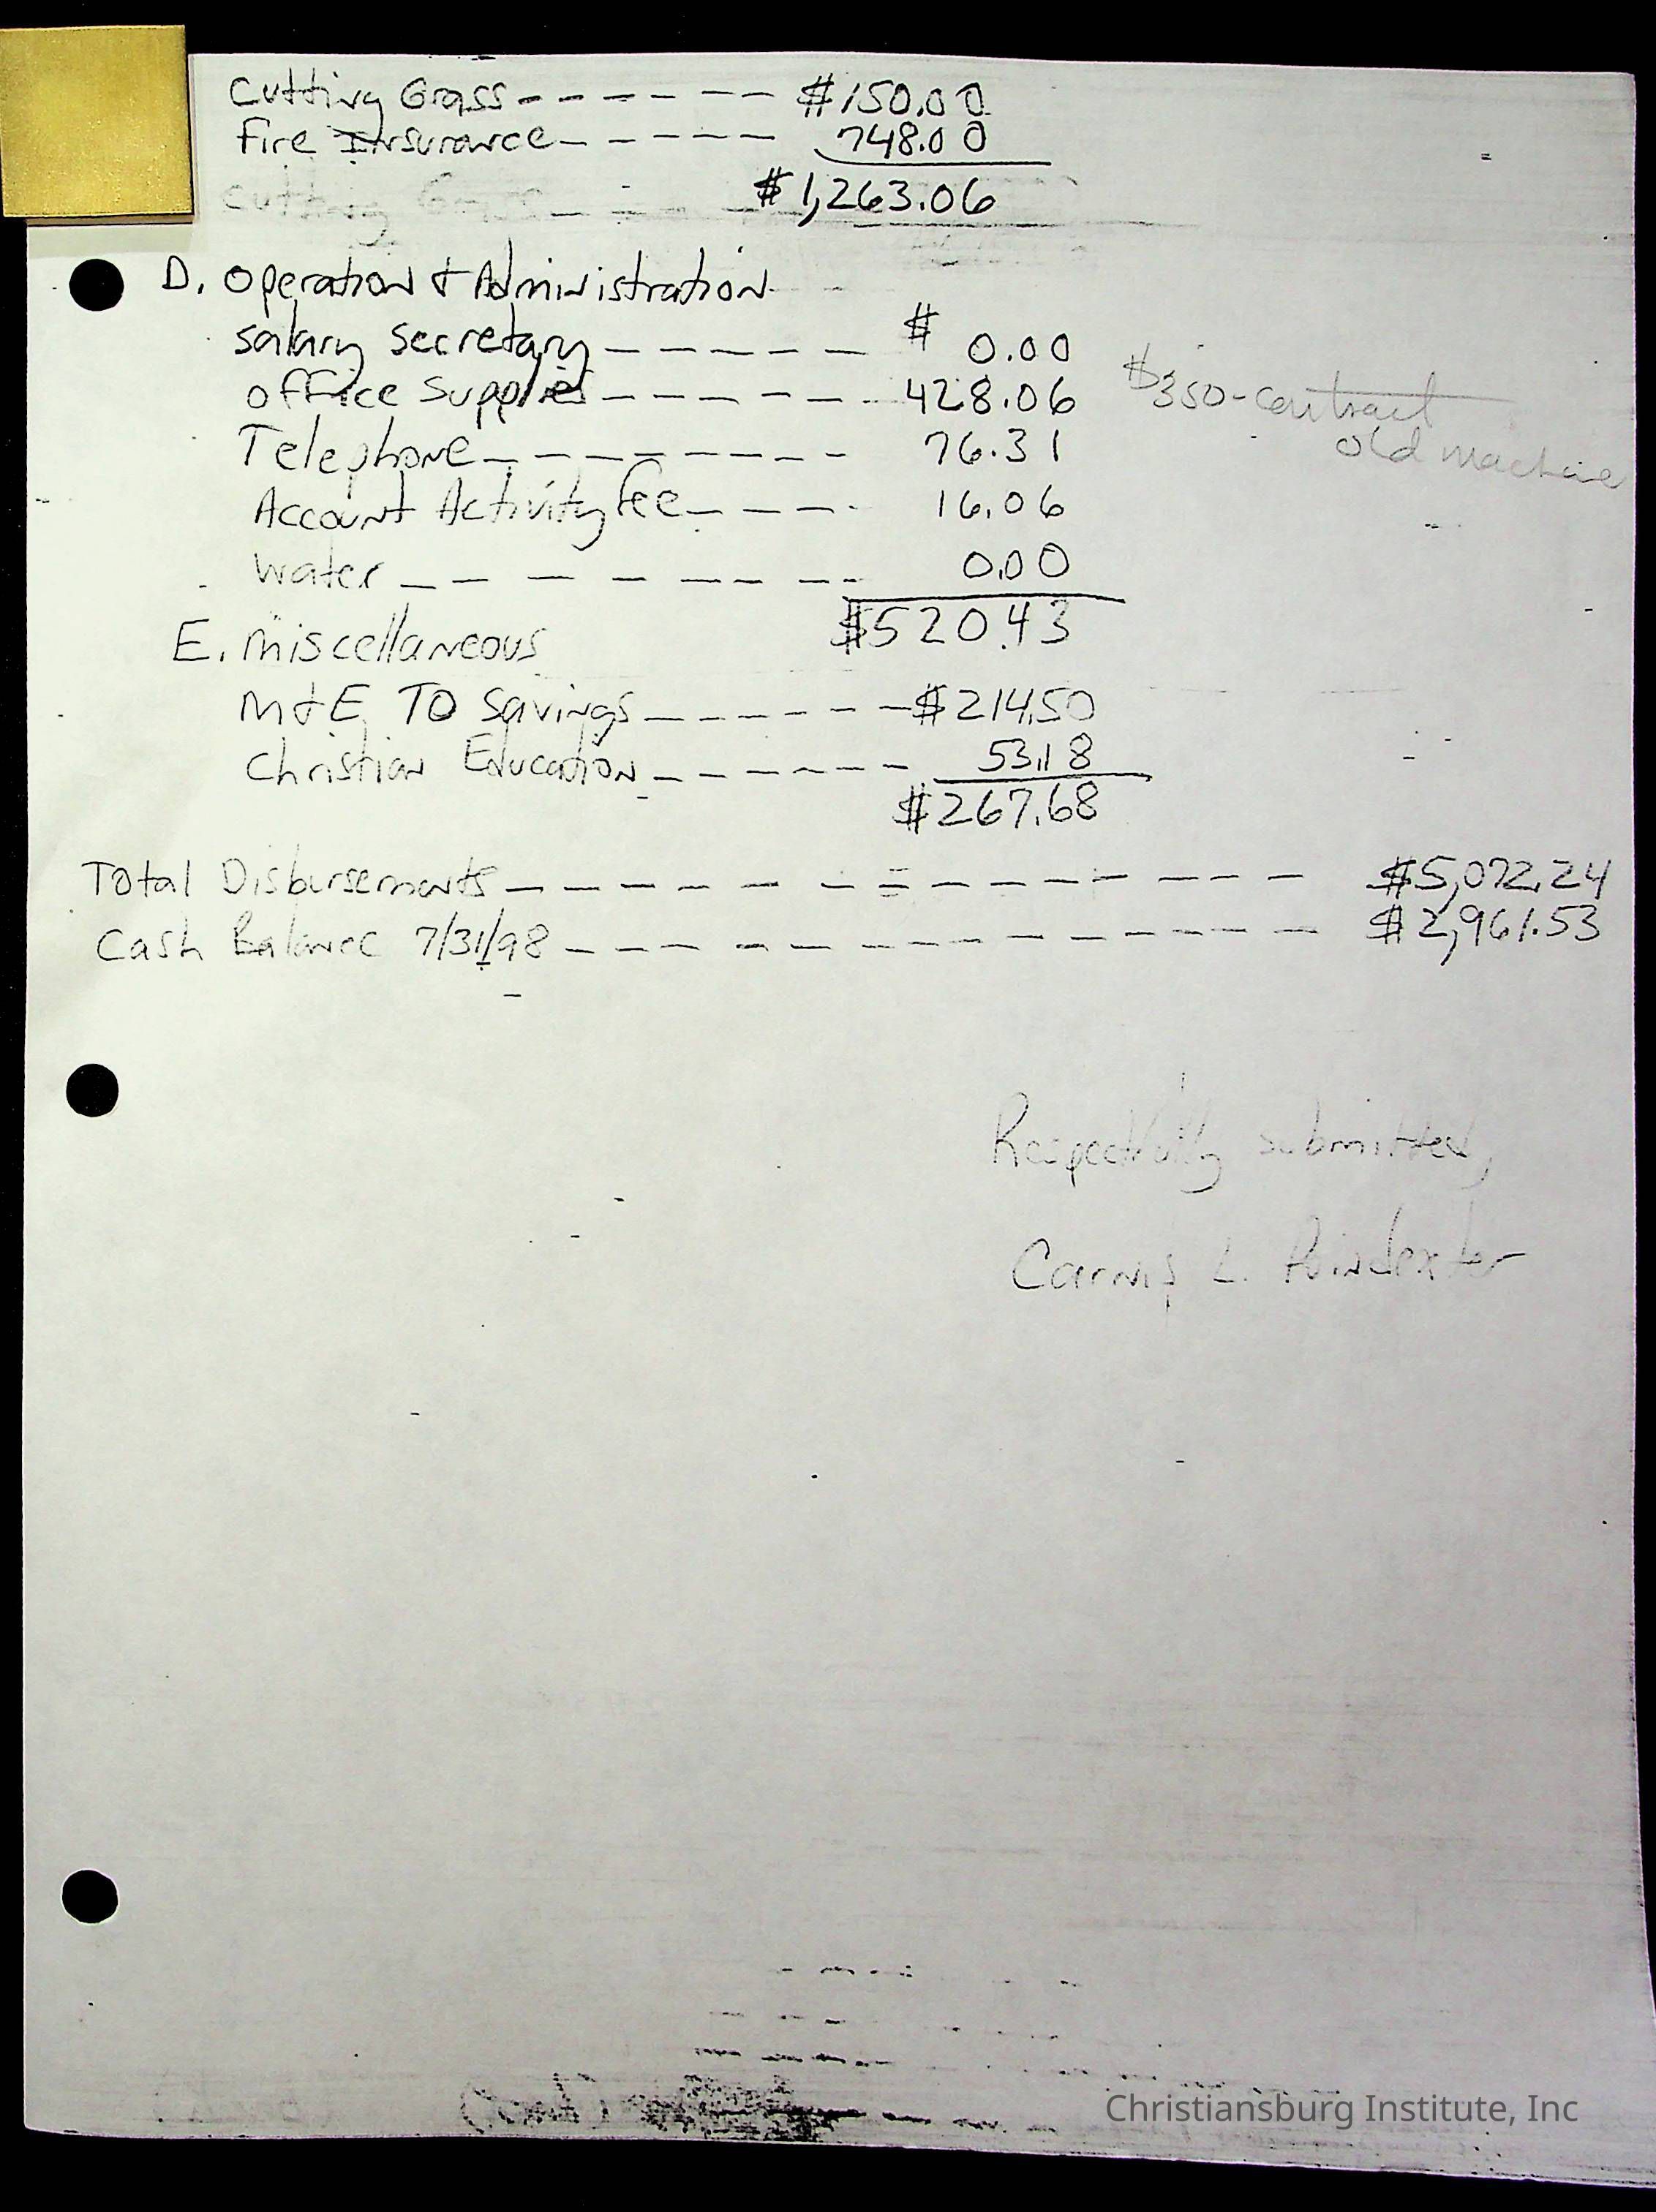 Cutting Grass ------ $150.00
Fire Insurance ----- 748.00
$1,263.06
Cutting Grass
D. Operation & Administration
Salary Secretary ----- $ 0.00
Office Supplies ------ 428.06 $350-contract
old machine
Telephone --------- 76.31
Account Activity fee ---- 16.06
Water -------- 0.00
$520.43
E. Miscellaneous
M&E TO Savings ------ $214.50
Christian Education ------ 53.18
$267.68
Total Disbursements -------------- $5,072.24
Cash Balance 7/31/98 ------------- $2,961.53
Respectfully submitted,
L. Poindexter
Christiansburg Institute, Inc